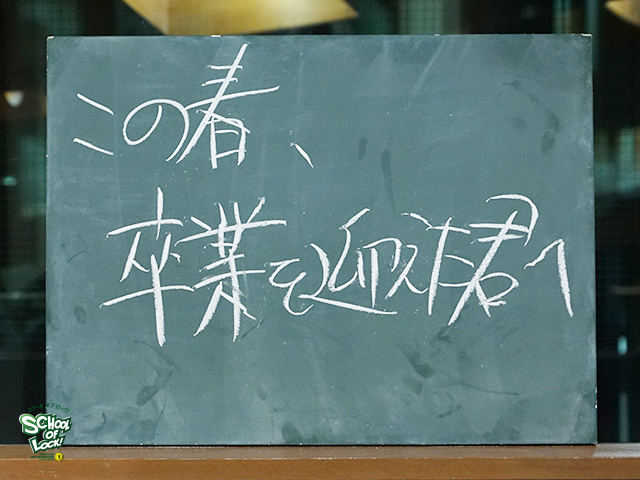 この春、
卒業を迎えた君へ
SCHOOL
OF
LOCK!